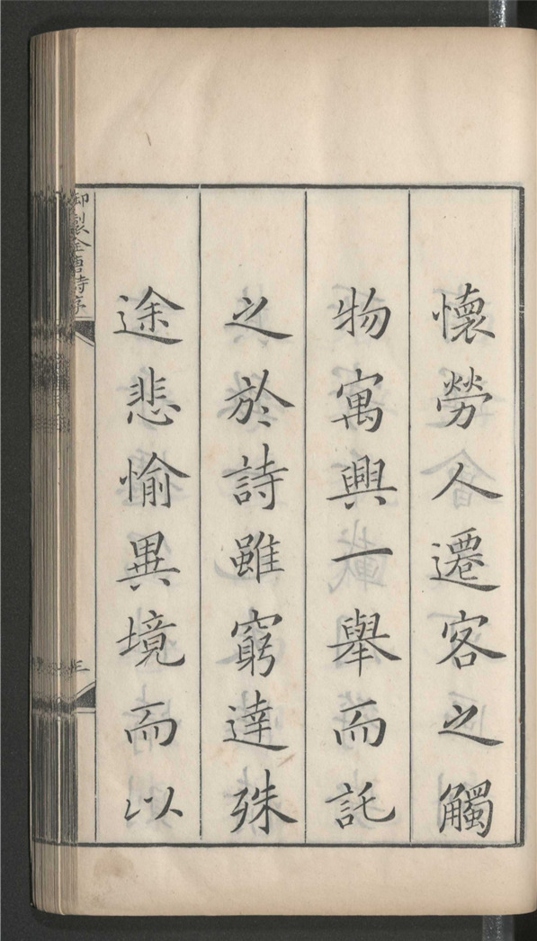 懷勞人遷客之觸
物寓興一舉而託
之於詩雖窮達殊
途悲愉異境而以
御製全唐詩序